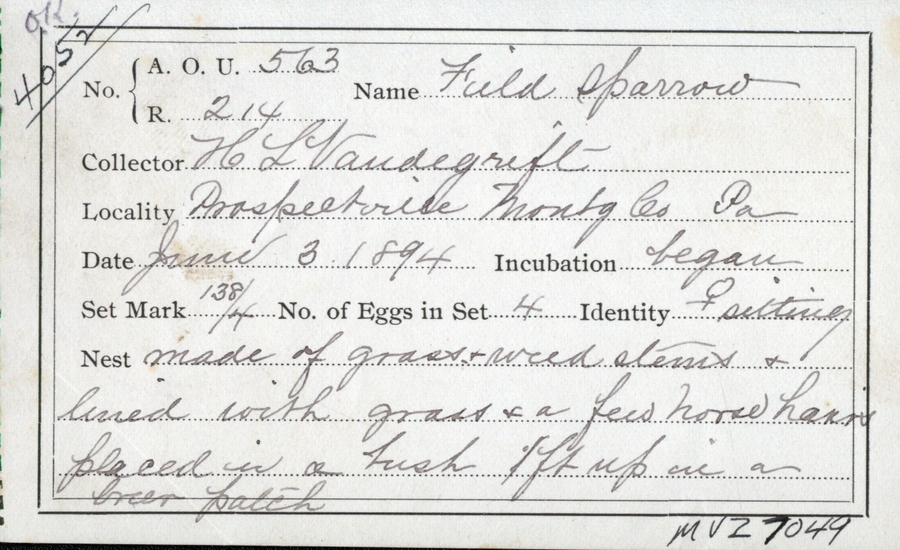 OK.
4052
No. { A. O. U. 563
R. 214
Name Field Sparrow
Collector H L Vandegrift
Locality Prospectville Montg Co Pa
Date June 3 1894 Incubation began
Set Mark 138/4 No. of Eggs in Set 4 Identity ♀ sitting
Nest made of grass + weed stems +
lined with grass + a few horse hairs
placed in a bush 1ft up in a
brier patch
MVZ 7049